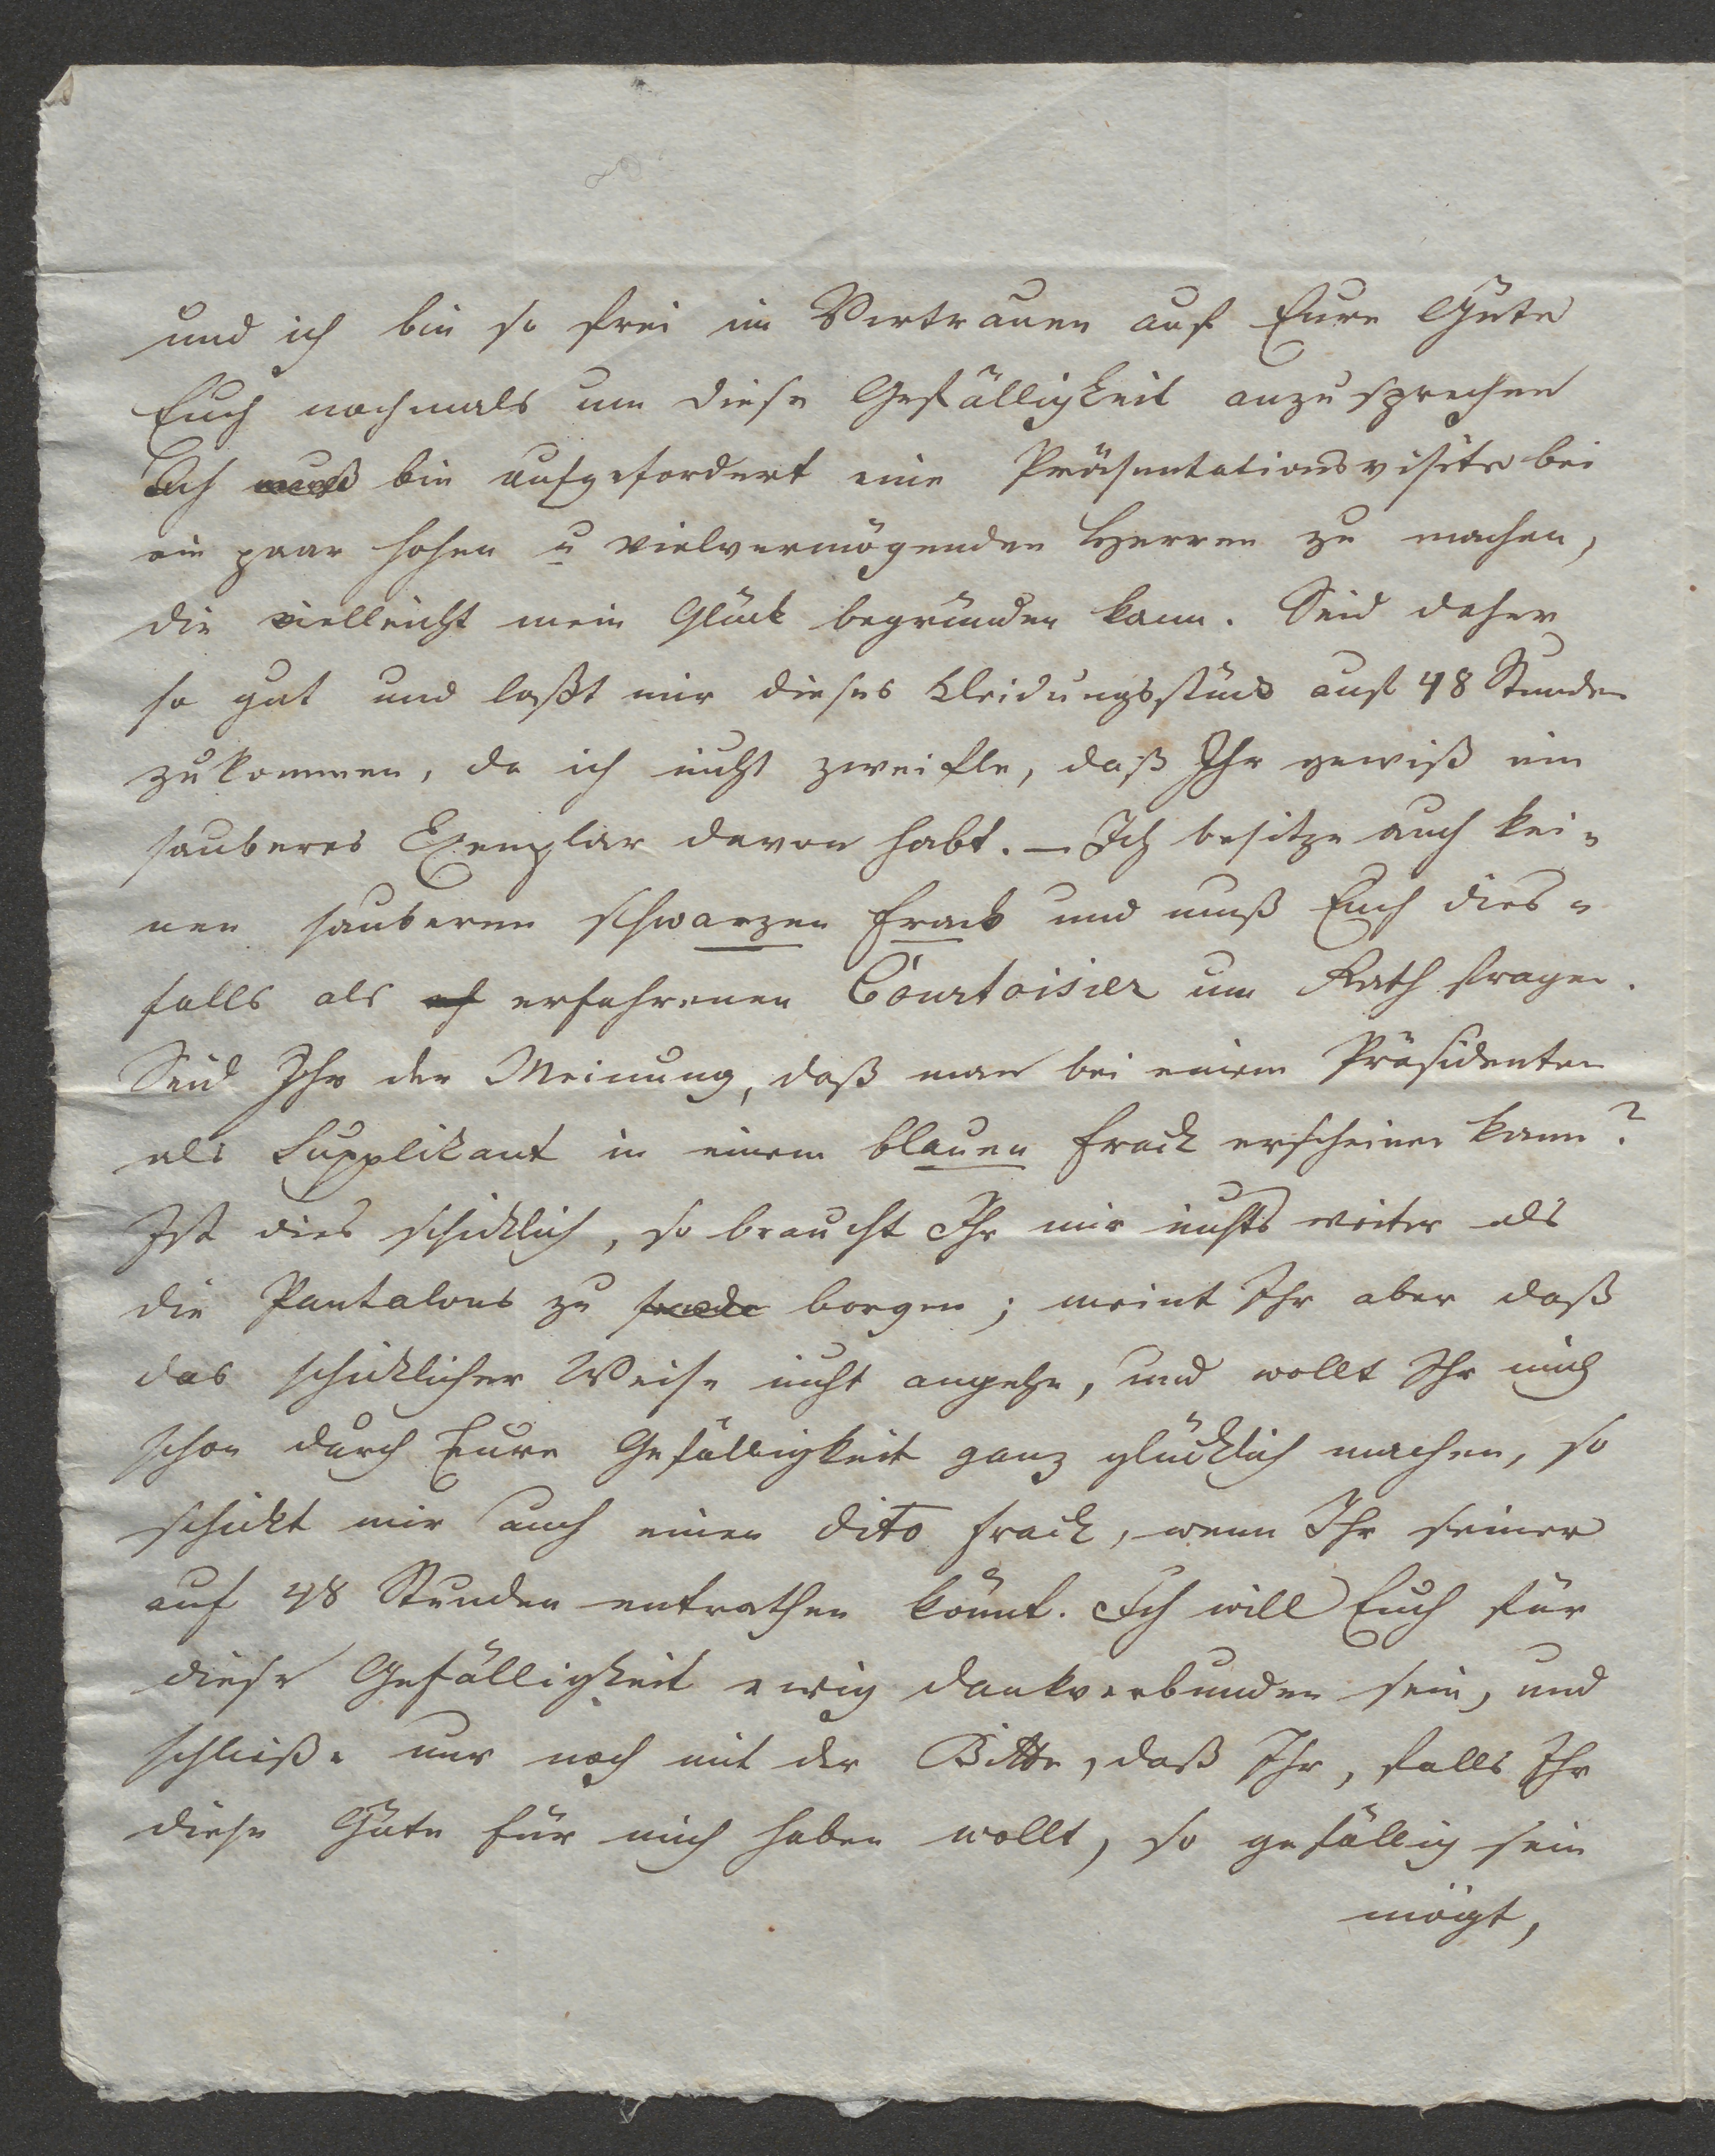 und ich bin so frei im Vertrauen auf Eure Güte
Euch nochmals um diese Gefälligkeit anzusprechen
Ich muß bin aufgefordert eine Präsentationsvisite bei
ein paar hohen u vielvermögenden Herren zu machen,
die vielleicht mein Glück begründen kann. Seid daher
so gut und laßt mir dieses Kleidungsstück auf 48 Stunden
zukommen, da ich nicht zweifle, daß Ihr gewiß ein
sauberes Exemplar davon habt. – Ich besitze auch kei=
nen sauberen schwarzen Frack und muß Euch dies=
falls als erfahrenen Courtoisier um Rath fragen.
Seid Ihr der Meinung, daß man bei einem Präsidenten
als Supplikant in einem blauen Frack erscheinen kann?
Ist dies schicklich, so braucht Ihr mir nichts weiter als
die Pantalons zu borgen; meint Ihr aber daß
das schicklicher Weise nicht angehe, und wollt Ihr mich
schon durch Eure Gefälligkeit ganz glücklich machen, so
schickt mir auch einen dito Frack, wenn Ihr seiner
auf 48 Stunden entrathen könnt. Ich will Euch für
diese Gefälligkeit ewig dankverbunden sein, und
schließe nur noch mit der Bitte, daß Ihr, falls Ihr
diese Güte für mich haben wollt, so gefällig sein
mögt,